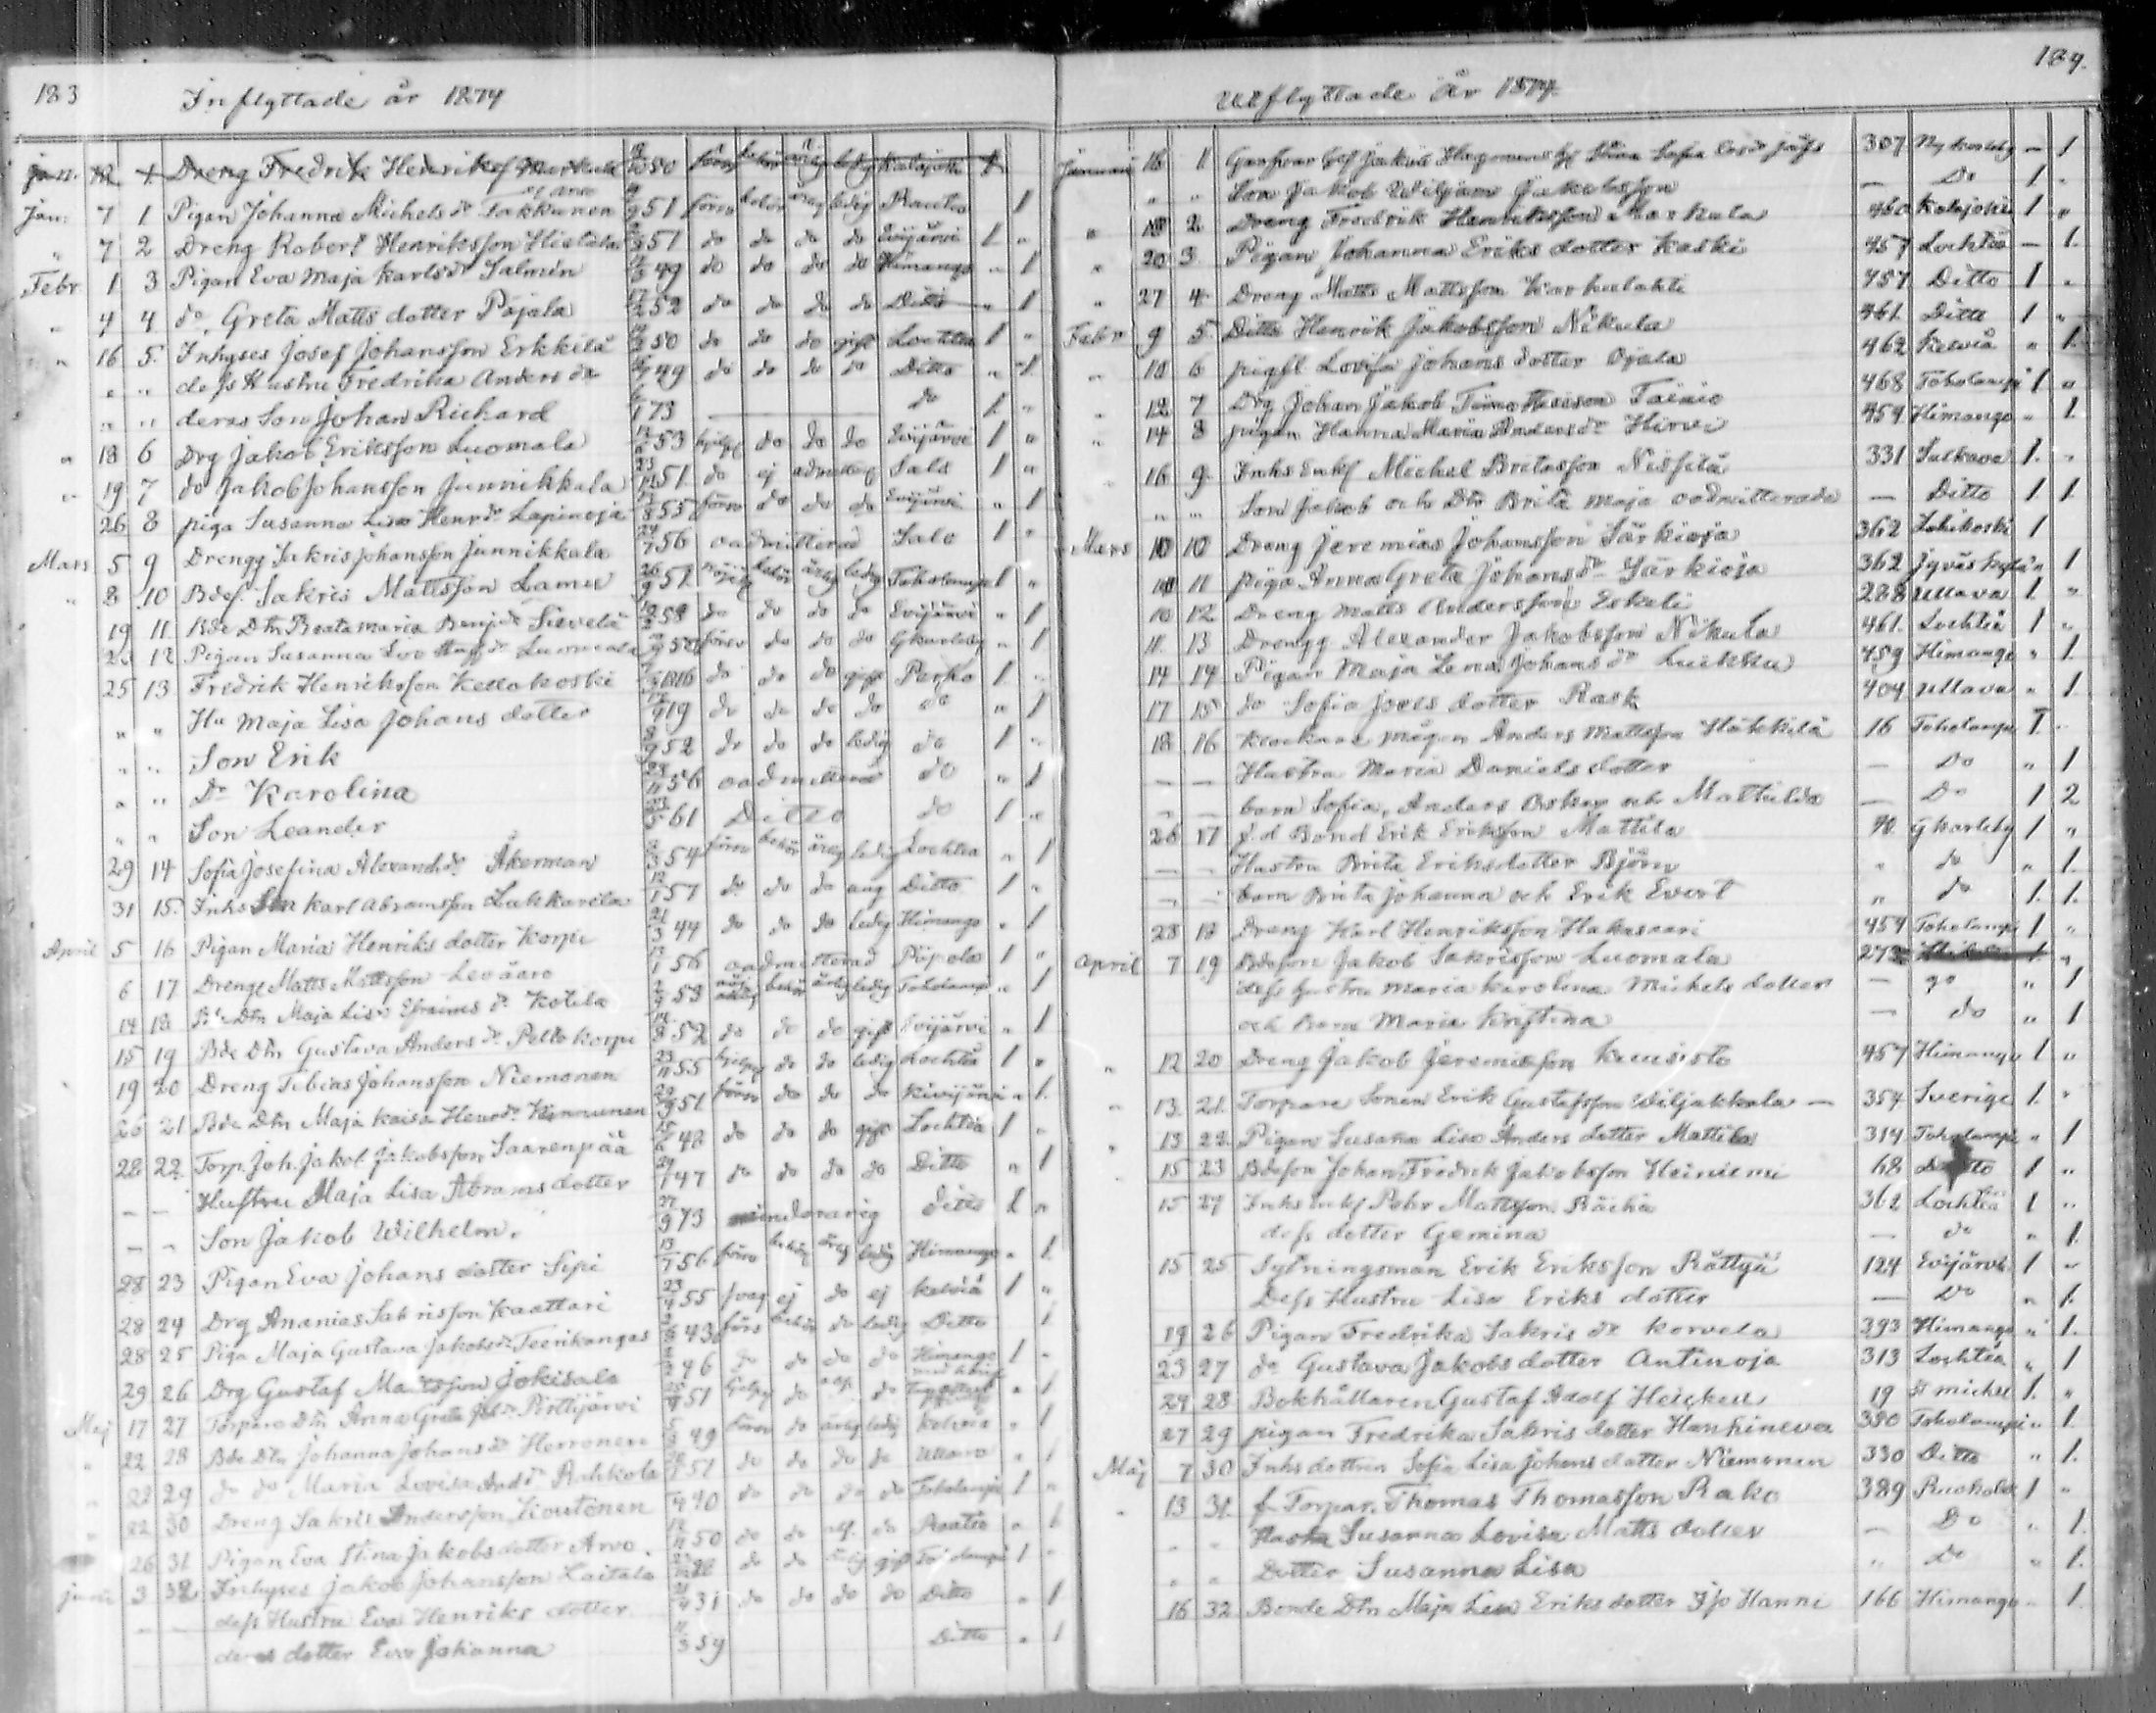 183
Inflyttade år 1874
Jan. 12 1 Dreng Fredrik Henriksf Markula 50 försv behör ärlig ledig Kalajoki 1
Jan: 7 1 Pigan Johanna Michels dr Takkunen 51 försv behör ärlig ledig Rautio 1
" 7 2 Dreng Robert Henriksson Hietala 51 do do do do Evijärvi 1 "
Febr. 1 3 Pigan Eva Maja Karlsdr Salmén 49 do do do do Himango " 1
" 4 4 do Greta Matts dotter Pojala 52 do do do do Ditto " 1
" 16 5. Inhyses Josef Johansson Erkkilä 50 do do do gift Lochteå 1 "
" " dess Hustru Fredrika Anders dr 49 do do do do Ditto " 1
" " deras Son Johan Richard 73 do 1 "
" 18 6 Drg Jakob Eriksson Luomala 53 hjelpl do do do Evijärvi 1 "
" 19 7 do Jakob Johansson Junnikkala 51 do ej admitterad Salo 1 "
26 8 piga Susanna Lisa Henrdr Lapinoja 55 försv do do do Evijärvi " 1
Mars 5 9 Drengg Sakris Johansson Junnikkala 56 oadmitterad Salo 1 "
" 8 10 Bdes. Sakris Mattsson Lamu 51 nöjakt behör ärlig ledig Toholampi 1 "
19 11 Bde Dtr Beata Maria Benjdr Sievelä 58 do do do do Evijärvi " 1
23 12 Pigan Susanna Lov Luomala 52 försv do do do Gkarleby " 1
25 13 Fredrik Henriksson Kellokoski 1816 do do do gift Perho 1 "
" " Hu Maja Lisa Johans dotter 19 do do do do do " 1
" " Son Erik 52 do do do ledig do 1 "
" " Dr Karolina 56 oadmitterad do " 1
" " Son Leander 61 Ditto do 1 "
29 14 Sofia Josefina Alexanddr Åkerman 54 försv behör ärlig ledig Lochteå " 1
31 15. Inhs Son Karl Abramsson Lukkarila 57 do do do ung Ditto 1 "
April 5 16 Pigan Maria Henriks dotter Korpi 44 do do do ledig Himango " 1
6 17 Drenge Matts Mattsson Leväaro 56 oadmitterad Piipola 1 "
14 18 Bde Dtr Maja Lisa Efraims dr Kotila 53 behör ärlig ledig Toholampi " 1
15 19 Bde Dtr Gustava Anders dr Peltokorpi 52 do do do gift Evijärvi " 1
19 20 Dreng Tobias Johansson Niemonen 55 hjelpl do do ledig Lochteå 1 "
26 21 Bde Dtr Maja Kaisa Henrdr Kinnunen 51 försv do do do Kivijärvi " 1
28 22 Torp. Joh. Jakob Jakobsson Saarenpää 48 do do do gift Lochteå 1 "
— — Hustru Maja Lisa Abrams dotter 47 do do do do Ditto " 1
— — Son Jakob Wilhelm. 73 minderårig Ditto 1 "
28 23 Pigan Eva Johans dotter Sipi 56 försv behör ärlig ledig Himango " 1
28 24 Drg Ananias Sakrisson Kaattari 55 svag ej do ej Kelviå 1 "
28 25 Piga Maja Gustava Jakobsdr Teerikangas 43 försv behör do ledig Ditto 1
29 26 Drg Gustaf Mattsson Jokisalo 46 do do do do Himango 1 "
Maj 17 27 Torpare Dtr Anna Greta Pirttijärvi 51 hjelpl do do " 1
" 22 28 Bde Dtr Johanna Johans dr Herronen 49 försv do ärlig ledig Kelviå " 1
" 22 29 do do Maria Lovisa Andr Rahkola 51 do do do do Ullava " 1
" 22 30 Dreng Sakris Andersson Kiontonen 40 do do do do Toholampi 1 "
26 31 Pigan Eva Stina Jakobs dotter Arvo. 50 do do do Rautio " 1
Juni 3 32. Inhyses Jakob Johansson Laitala do do ärlig gift Toholampi 1 "
— — dess Hustru Eva Henriks dotter 31 do do do do Ditto " 1
deras dotter Eva Johanna 59 Ditto " 1
184.
Utflyttade År 1874.
Januari 16 1 Jakob Sofia 307 Ny karleby — 1
" " Son Jakob Wiljam Jakobsson — Do 1 "
" 18 2 Dreng Fredrik Henriksson Markula 460 Kalajoki 1 "
" 20 3 Pigan Johanna Eriks dotter Kaski 457 Lochteå — 1.
" 27 4 Dreng Matts Mattsson Karhulahti 457 Ditto 1 "
Febr 9 5 Ditto Henrik Jakobsson Nikula 461 Ditto 1 "
" 10 6 pigfl Lovisa Johans dotter Ojala 462 Kelviå " 1
" 12 7 Drg Johan Jakob Timotheisson Tainio 468 Toholampi 1 "
" 14 8 pigan Hanna Maria Anders dr Hirvi 459 Himango " 1.
" 16 9 Inhs Enkl Michel Britasson Nissilä 331 Sulkava 1. "
" " Son Jakob och Dtr Brita Maja oadmitterade — Ditto 1 1.
Mars 10 10 Dreng Jeremias Johansson Särkioja 362 1
10 11 piga Anna Greta Johans dr Särkioja 362 Jyväskylä " 1
10 12 Dreng Matts Andersson Eskeli 288 Ullava 1 "
11. 13 Drengg Alexander Jakobsson Nikula 461. Lochteå 1 "
14 14 Pigan Maja Lena Johans dr Luikku 459 Himango " 1
17 15 do Sofia Joels dotter Rask 404 Ullava " 1
18 16 Klockare mågen Anders Mattsson Häkkilä 16 Toholampi 1 "
— — Hustru Maria Daniels dotter — Do " 1
" — barn Sofia, Anders Oskar och Mathilda — Do 1 2
26 17 f.d Bond Erik Eriksson Mattila 40 Gkarleby 1 "
— — Hustru Brita Eriksdotter Björn " do " 1.
— — barn Brita Johanna och Erik Evert " do 1. 1.
28 18 Dreng Karl Henriksson Hakasaari 459 Toholampi 1 "
April 7 19 Bdeson Jakob Sakrisson Luomala 273 1 "
dess hustru Maria Karolina Michels dotter — do " 1
och Barn Maria Kristina — do " 1
" 12 20 Dreng Jakob Jeremiasson Kuusisto 457 Himango 1 "
" 13. 21. Torpare Sonen Erik Gustafsson Wiljakkala — 354 Sverige 1. "
" 13 22. Pigan Susana Lisa Anders dotter Mattila 314 Toholampi " 1
15 23 Bdeson Johan Fredrik Jakobsson Heiniemi 68 Ditto 1 "
15 24 Inhs Enkl Petter Mattsson Räihä 362 Lochteå 1 "
dess dotter Gemina — do " 1.
15 25 Sytningsman Erik Eriksson Rättyä 124 Evijärvi 1 "
Dess Hustru Lisa Eriks dotter — Do " 1.
19 26 Pigan Fredrika Sakris dr Korvela 393 Himango " 1.
23 27 do Gustava Jakobs dotter Antinoja 313 Lochteå " 1
24 28 Bokhållaren Gustaf Adolf Heickell 19 St michel 1. "
27 29 pigan Fredrika Sakris dotter Hanhineva 380 Toholampi " 1.
Maj 7 30 Inhs dottren Sofia Lisa Johans dotter Niemonen 330 Ditto " 1.
" 13 31. f Torpar. Thomas Thomasson Rako 389 1 "
" " Hustru Susanna Lovisa Matts dotter — Do " 1.
" " Dotter Susanna Lisa " Do " 1.
16 32 Bonde Dtr Maja Lisa Eriks dotter Hanni 166 Himango " 1.